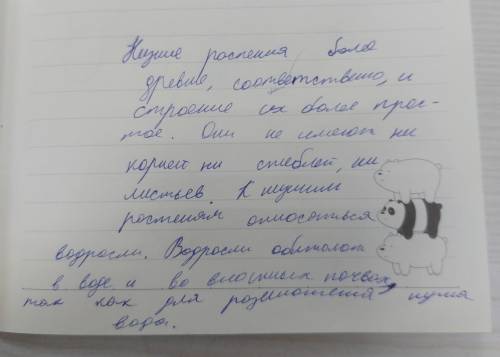 Низшие растения более
древние, соответственно, и
строение их более прос-
тое. Они не имеют ни
корней ни стеблей, ни
листьев. К низшим
растениям относяться
водросли. Водросли обитают
в воде и во влажных почвах,
так как для размножения нужна
вода.